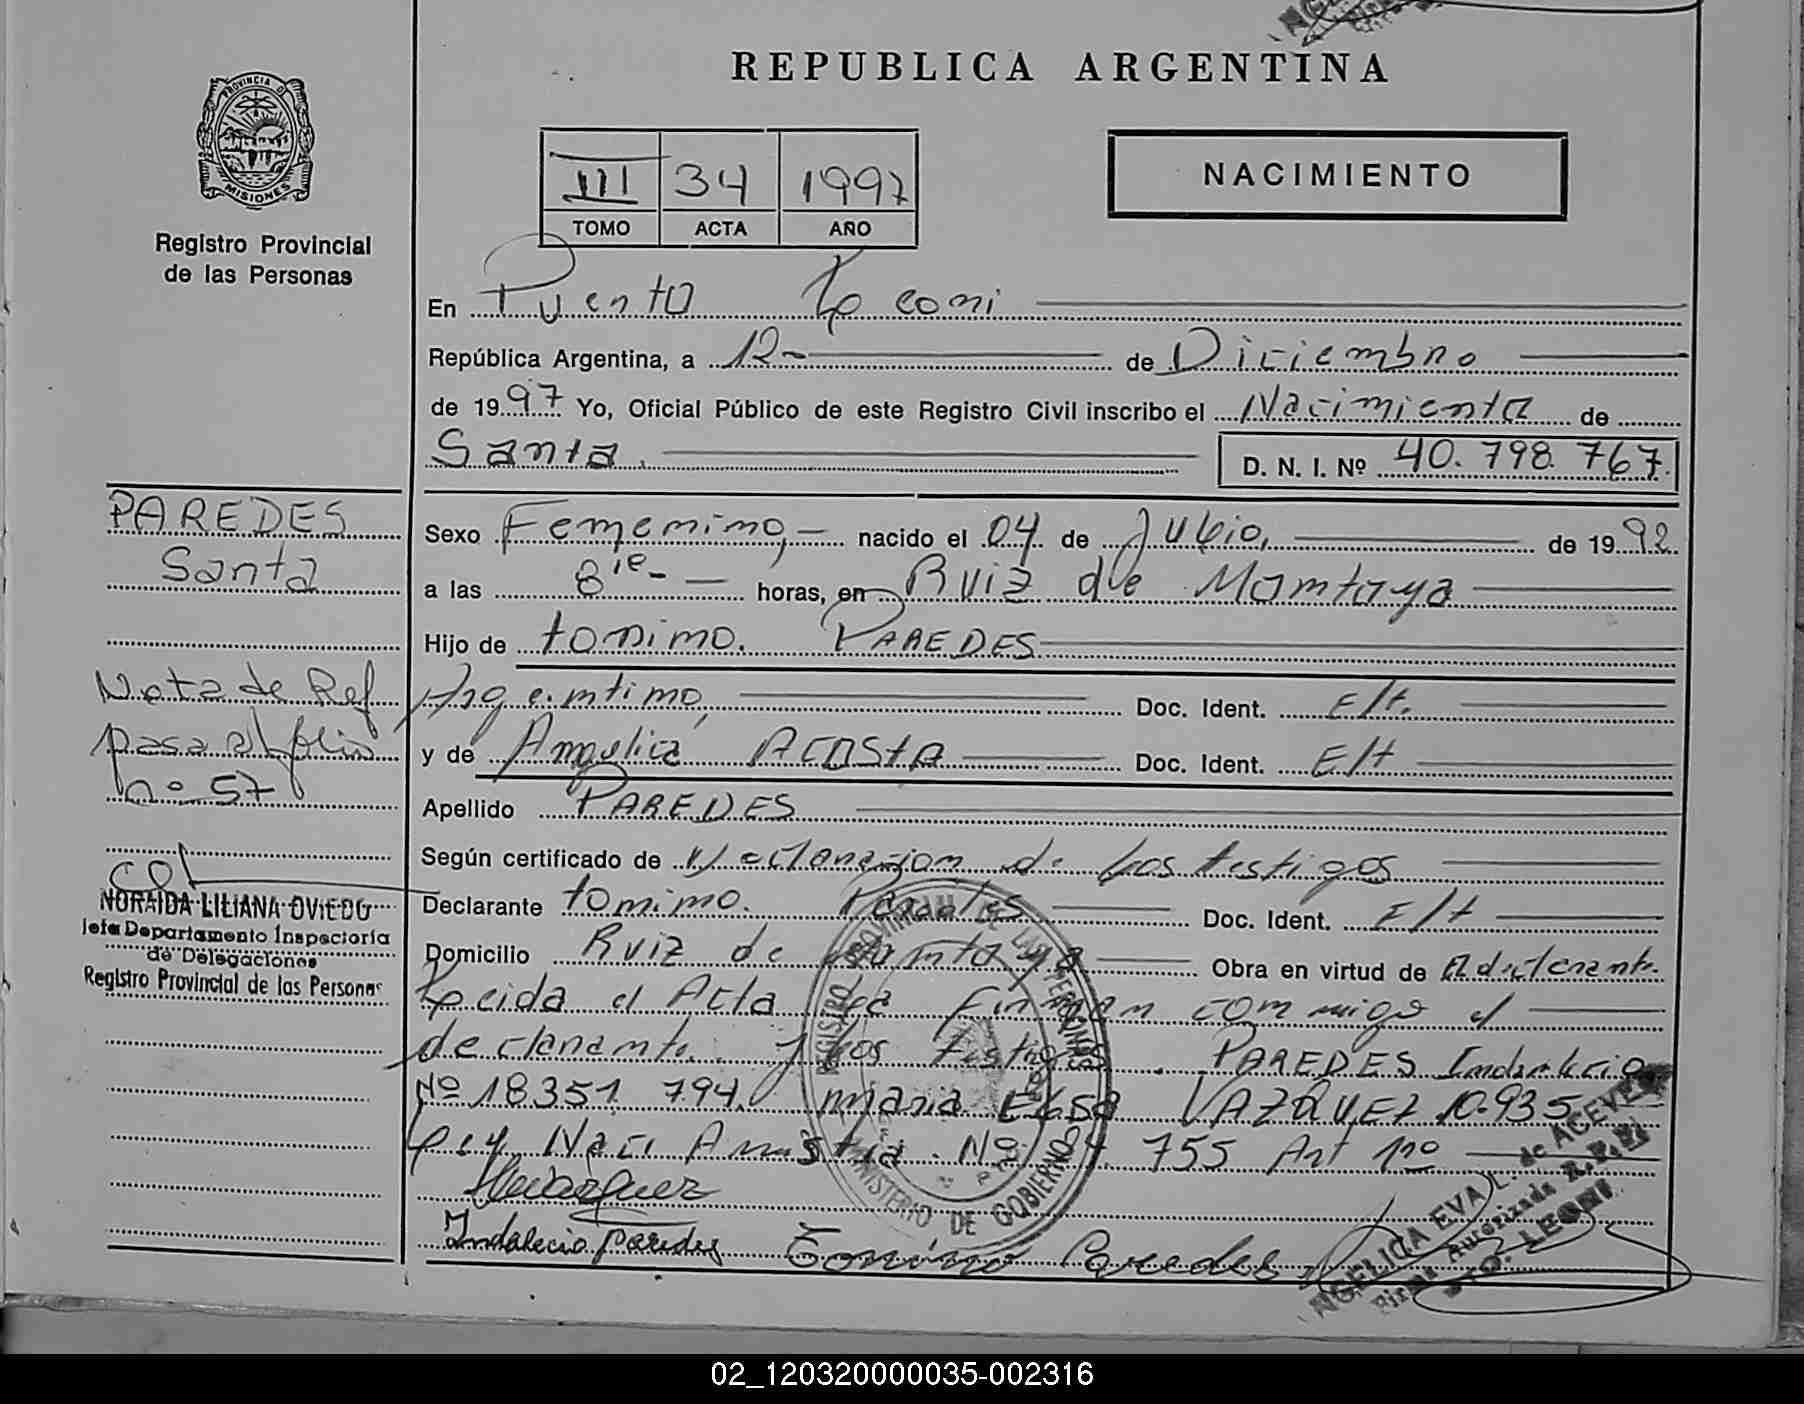 REPUBLICA ARGENTINA
PROVINCIA DE
MISIONES
Registro Provincial
de las Personas
III 34 1997
TOMO ACTA AÑO
NACIMIENTO
En Puerto Leoni
República Argentina, a 12- de Diciembre
de 1997 Yo, Oficial Público de este Registro Civil inscribo el Nacimiento de
Santa.
D. N. I. Nº 40.798.767.
PAREDES
Santa
Nota de Ref
pasa al folio
nº 57
NORAIDA LILIANA OVIEDO
Jefa Departamento Inspectoria
de Delegaciones
Registro Provincial de las Personas
Sexo Femenino, nacido el 04 de Julio, de 1992
a las 8 horas, en Ruiz de Montoya
Hijo de tonino. PAREDES
Argentino, Doc. Ident. E/t.
y de Angelica ACOSTA Doc. Ident. E/t
Apellido PAREDES
Según certificado de declaracion de los testigos
Declarante tonino. Paredes Doc. Ident. E/t
Domicilio Ruiz de Montoya Obra en virtud de El declarante.
Leida el Acta la firman conmigo el
declarante. y los testigos. PAREDES Indalecio
Nº 18351.794. maria Elsa VAZQUEZ 10.935
Ley Naci Amnistia. Nº 755 Art 1º
REGISTRO PROVINCIAL DE LAS PERSONAS
MINISTERIO DE GOBIERNO
Indalecio paredes Tonino Paredes
ANGELICA EVA L. de ACEVEDO
Firma Autorizada R.P.P.
PTO. LEONI
02_120320000035-002316